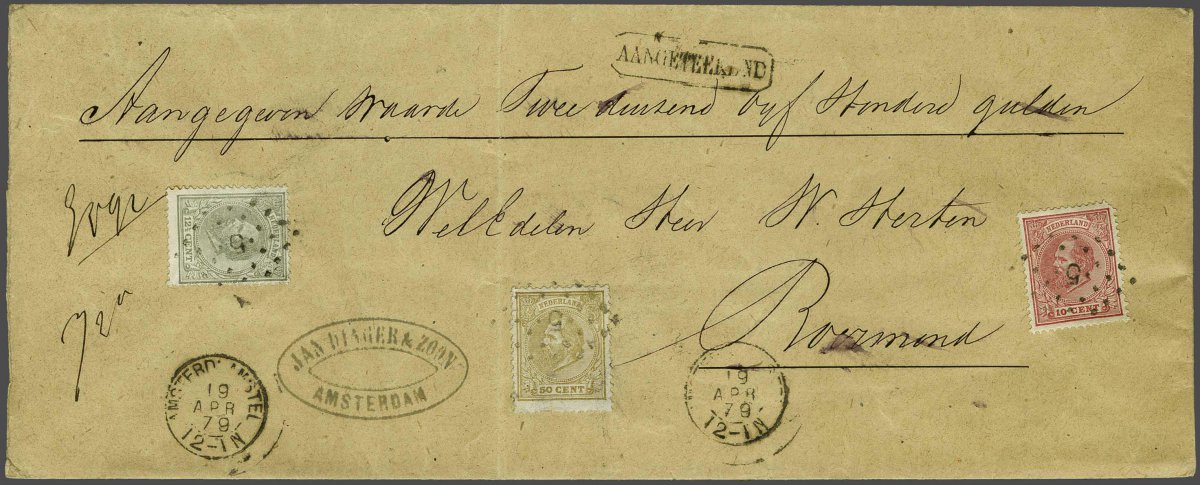 AANGETEEKEND
Aangegeven waarde Twee duizend vyf Honderd gulden
WelEdelen Heer W. Herten
Roermond
NEDERLAND
12½ CENT
5
NEDERLAND
50 CENT
5
NEDERLAND
10 CENT
5
JAN DINGER & ZOON
AMSTERDAM
AMSTERD: AMSTEL
19
APR
79
12-1N
19
APR
79
12-1N